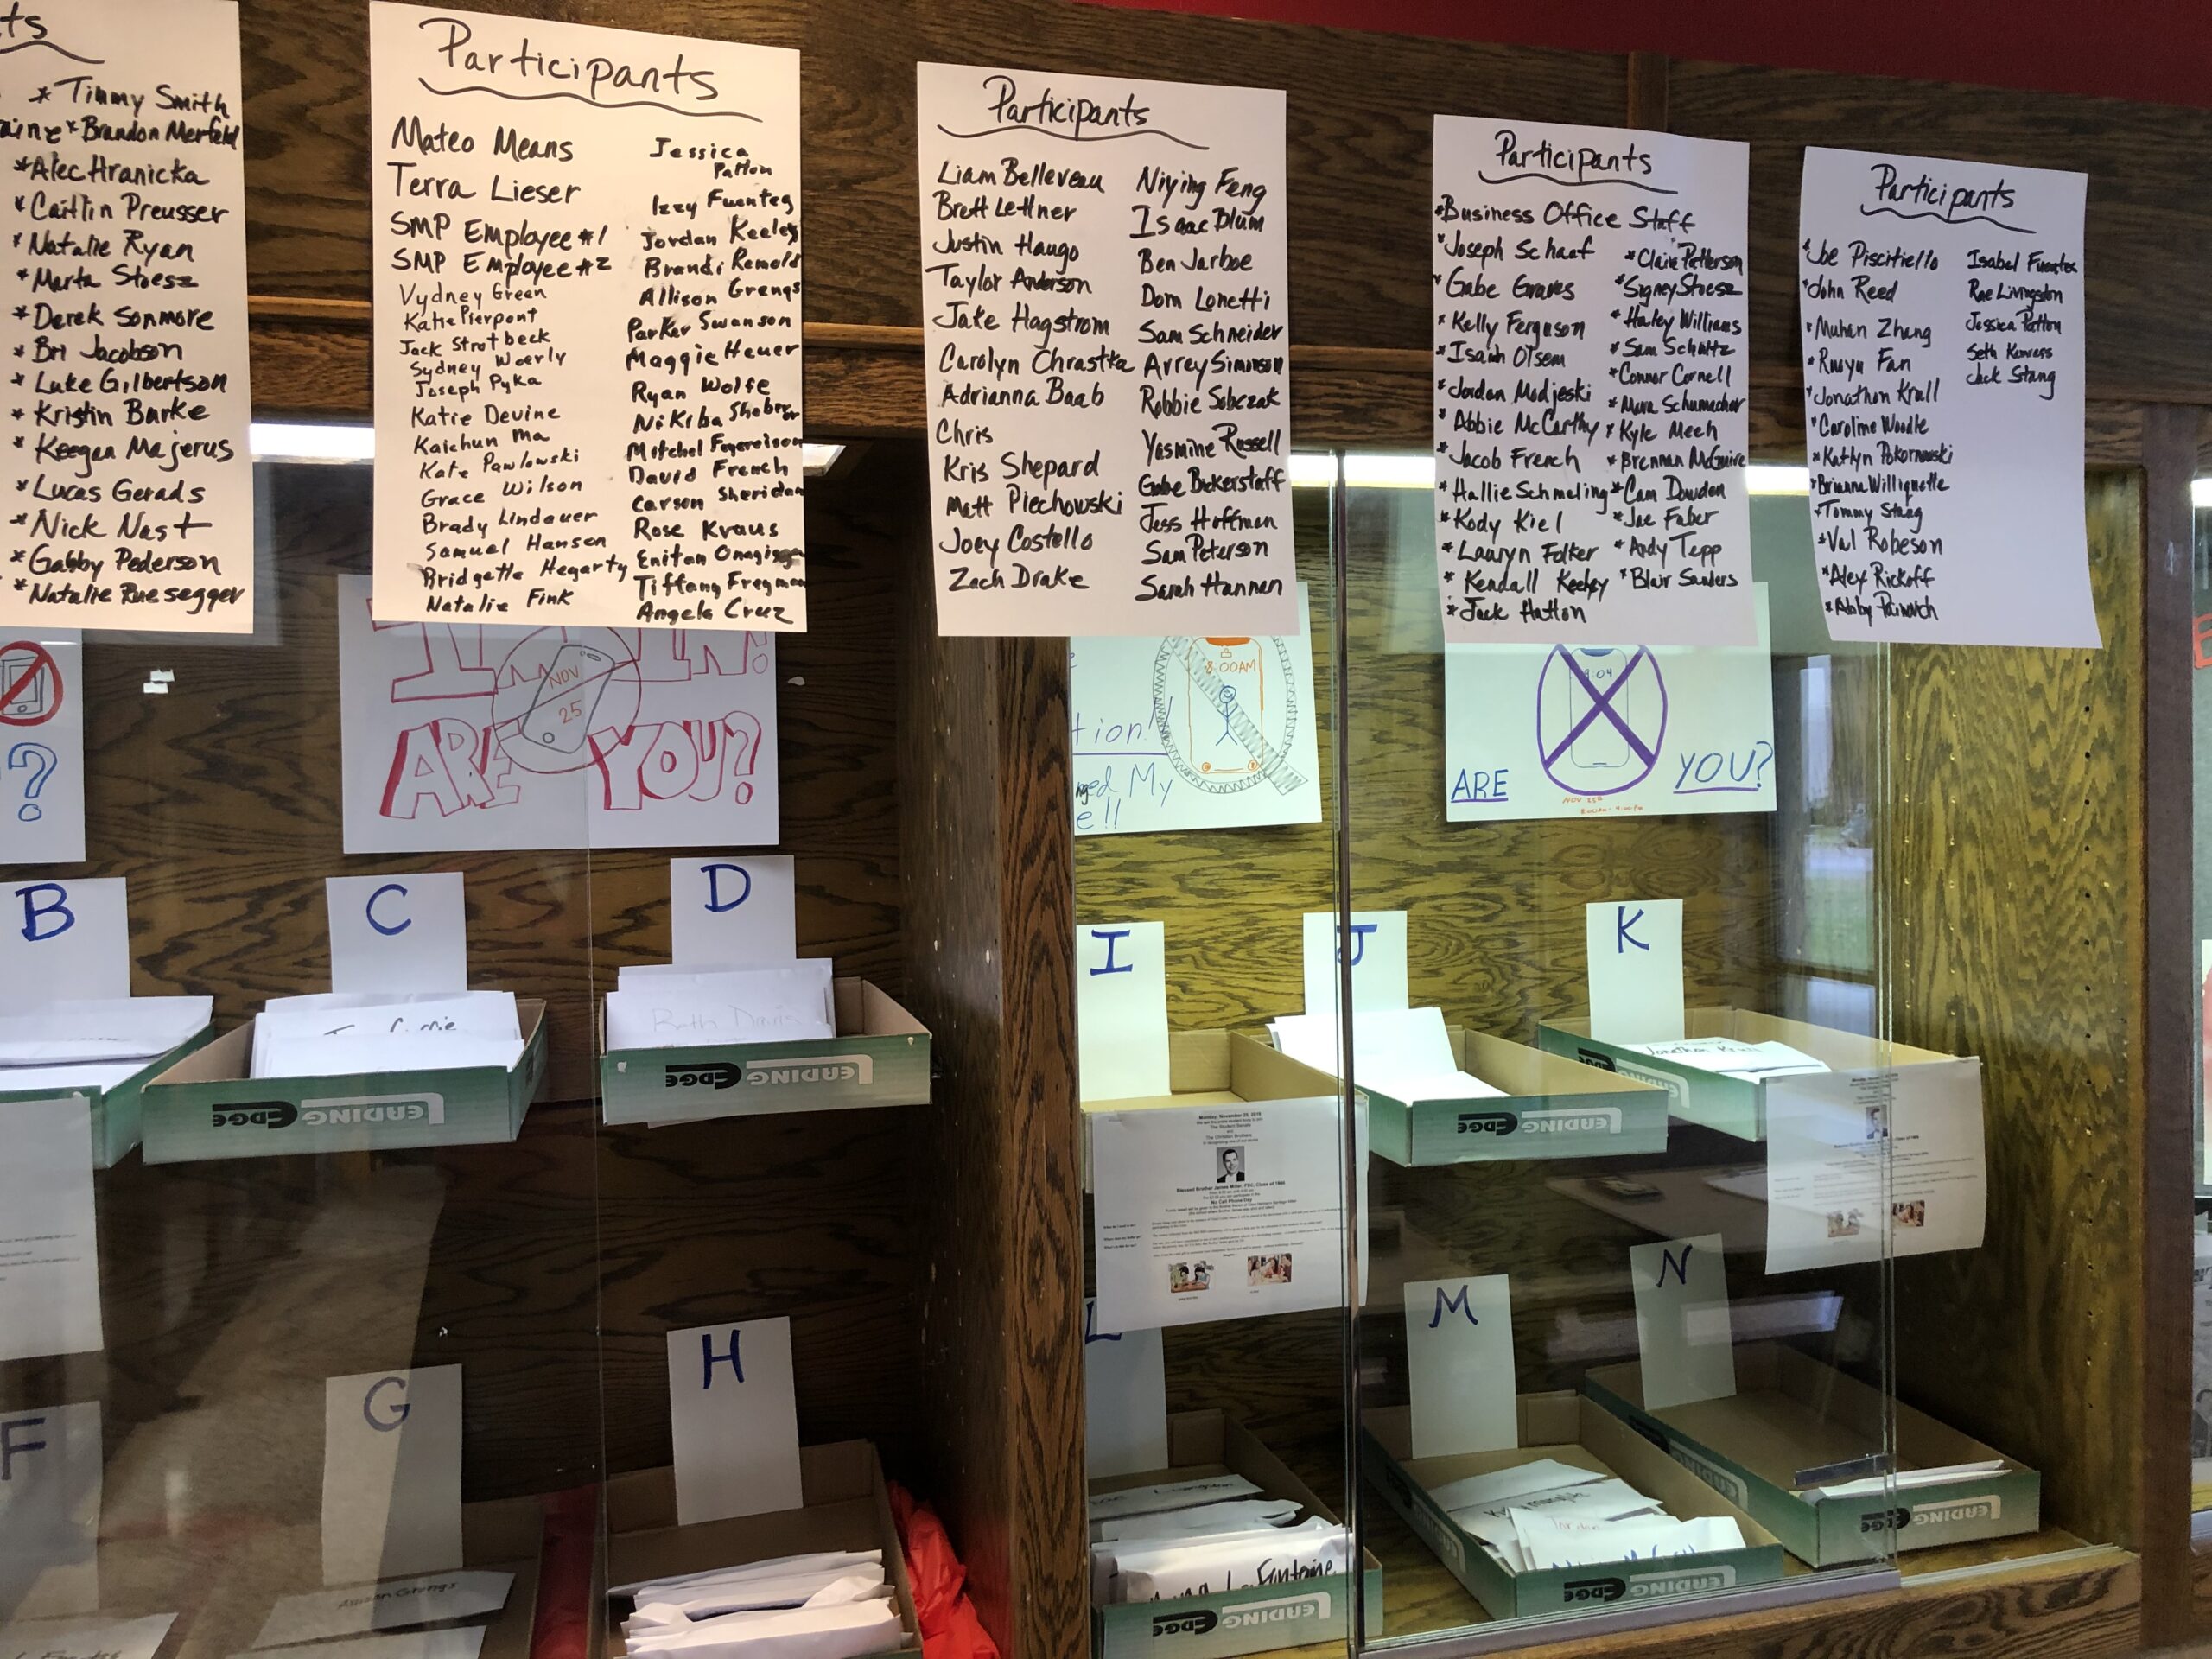 ts
* Timmy Smith
aine * Brandon Merfeld
* Alec Hranicka
* Caitlin Preusser
* Natalie Ryan
* Marta Stoesz
* Derek Sonmore
* Bri Jacobson
* Luke Gilbertson
* Kristin Burke
* Keegan Majerus
* Lucas Gerads
* Nick Nast
* Gabby Pederson
* Natalie Ruesegger
Participants
Mateo Means
Terra Lieser
SMP Employee #1
SMP Employee #2
Vydney Green
Katie Pierpont
Jack Strotbeck
Sydney Woerly
Joseph Pyka
Katie Devine
Kaichun Ma
Kate Pawlowski
Grace Wilson
Brady Lindauer
Samuel Hansen
Bridgette Hegarty
Natalie Fink
Jessica
Patton
Izzy Fuentes
Jordan Keeley
Brandi Remold
Allison Grengs
Parker Swanson
Maggie Heuer
Ryan Wolfe
Nikiba
Mitchel
David French
Carson Sheridan
Rose Kraus
Enitan
Tiffany
Angela Cruz
Participants
Liam Belleveau
Brett Lettner
Justin Haugo
Taylor Anderson
Jake Hagstrom
Carolyn Chrastka
Adrianna Baab
Chris
Kris Shepard
Matt Piechowski
Joey Costello
Zach Drake
Niying Feng
Isaac Blum
Ben Jarboe
Dom Lonetti
Sam Schneider
Avrey Simonson
Robbie Sobczak
Yasmine Russell
Gabe Bickerstaff
Jess Hoffman
Sam Peterson
Sarah Hannan
Participants
* Business Office Staff
* Joseph Schaaf
* Gabe Graves
* Kelly Ferguson
* Isaiah Olsem
* Jordan Modjeski
* Abbie McCarthy
* Jacob French
* Hallie Schmeling
* Kody Kiel
* Lauryn Folker
* Kendall Keeley
* Jack Hatton
* Claire Patterson
* Signey Stoesz
* Haley Williams
* Sam Schultz
* Connor Cornell
* Mara Schumacher
* Kyle Mech
* Brennan McGuire
* Cam Dowden
* Joe Faber
* Andy Tepp
* Blair Sanders
Participants
* Joe Piscitiello
* John Reed
* Muhan Zhang
* Ruoyu Fan
* Jonathon Krull
* Caroline Woodle
* Katlyn Pokornowski
* Brianna Williquette
* Tommy Stang
* Val Robeson
* Alex Rickoff
* Abby
Isabel Fuentes
Rae Livingston
Jessica Patton
Seth
Jack Stang
?
I'M IN!
NOV
25
ARE YOU?
8:00AM
tion!!
ed My
e!!
8:04
ARE YOU?
NOV 25th
B
C
D
I
J
K
Beth Davis
LEADING EDGE
LEADING EDGE
LEADING EDGE
Jonathon Krull
Monday, November 25, 2019
The Student Senate
and
The Christian Brothers
Blessed Brother James Miller, FSC, Class of 1966
No Cell Phone Day
F
G
H
L
M
N
Allison Grengs
La Fontaine
Jordan
LEADING EDGE
LEADING EDGE
LEADING EDGE